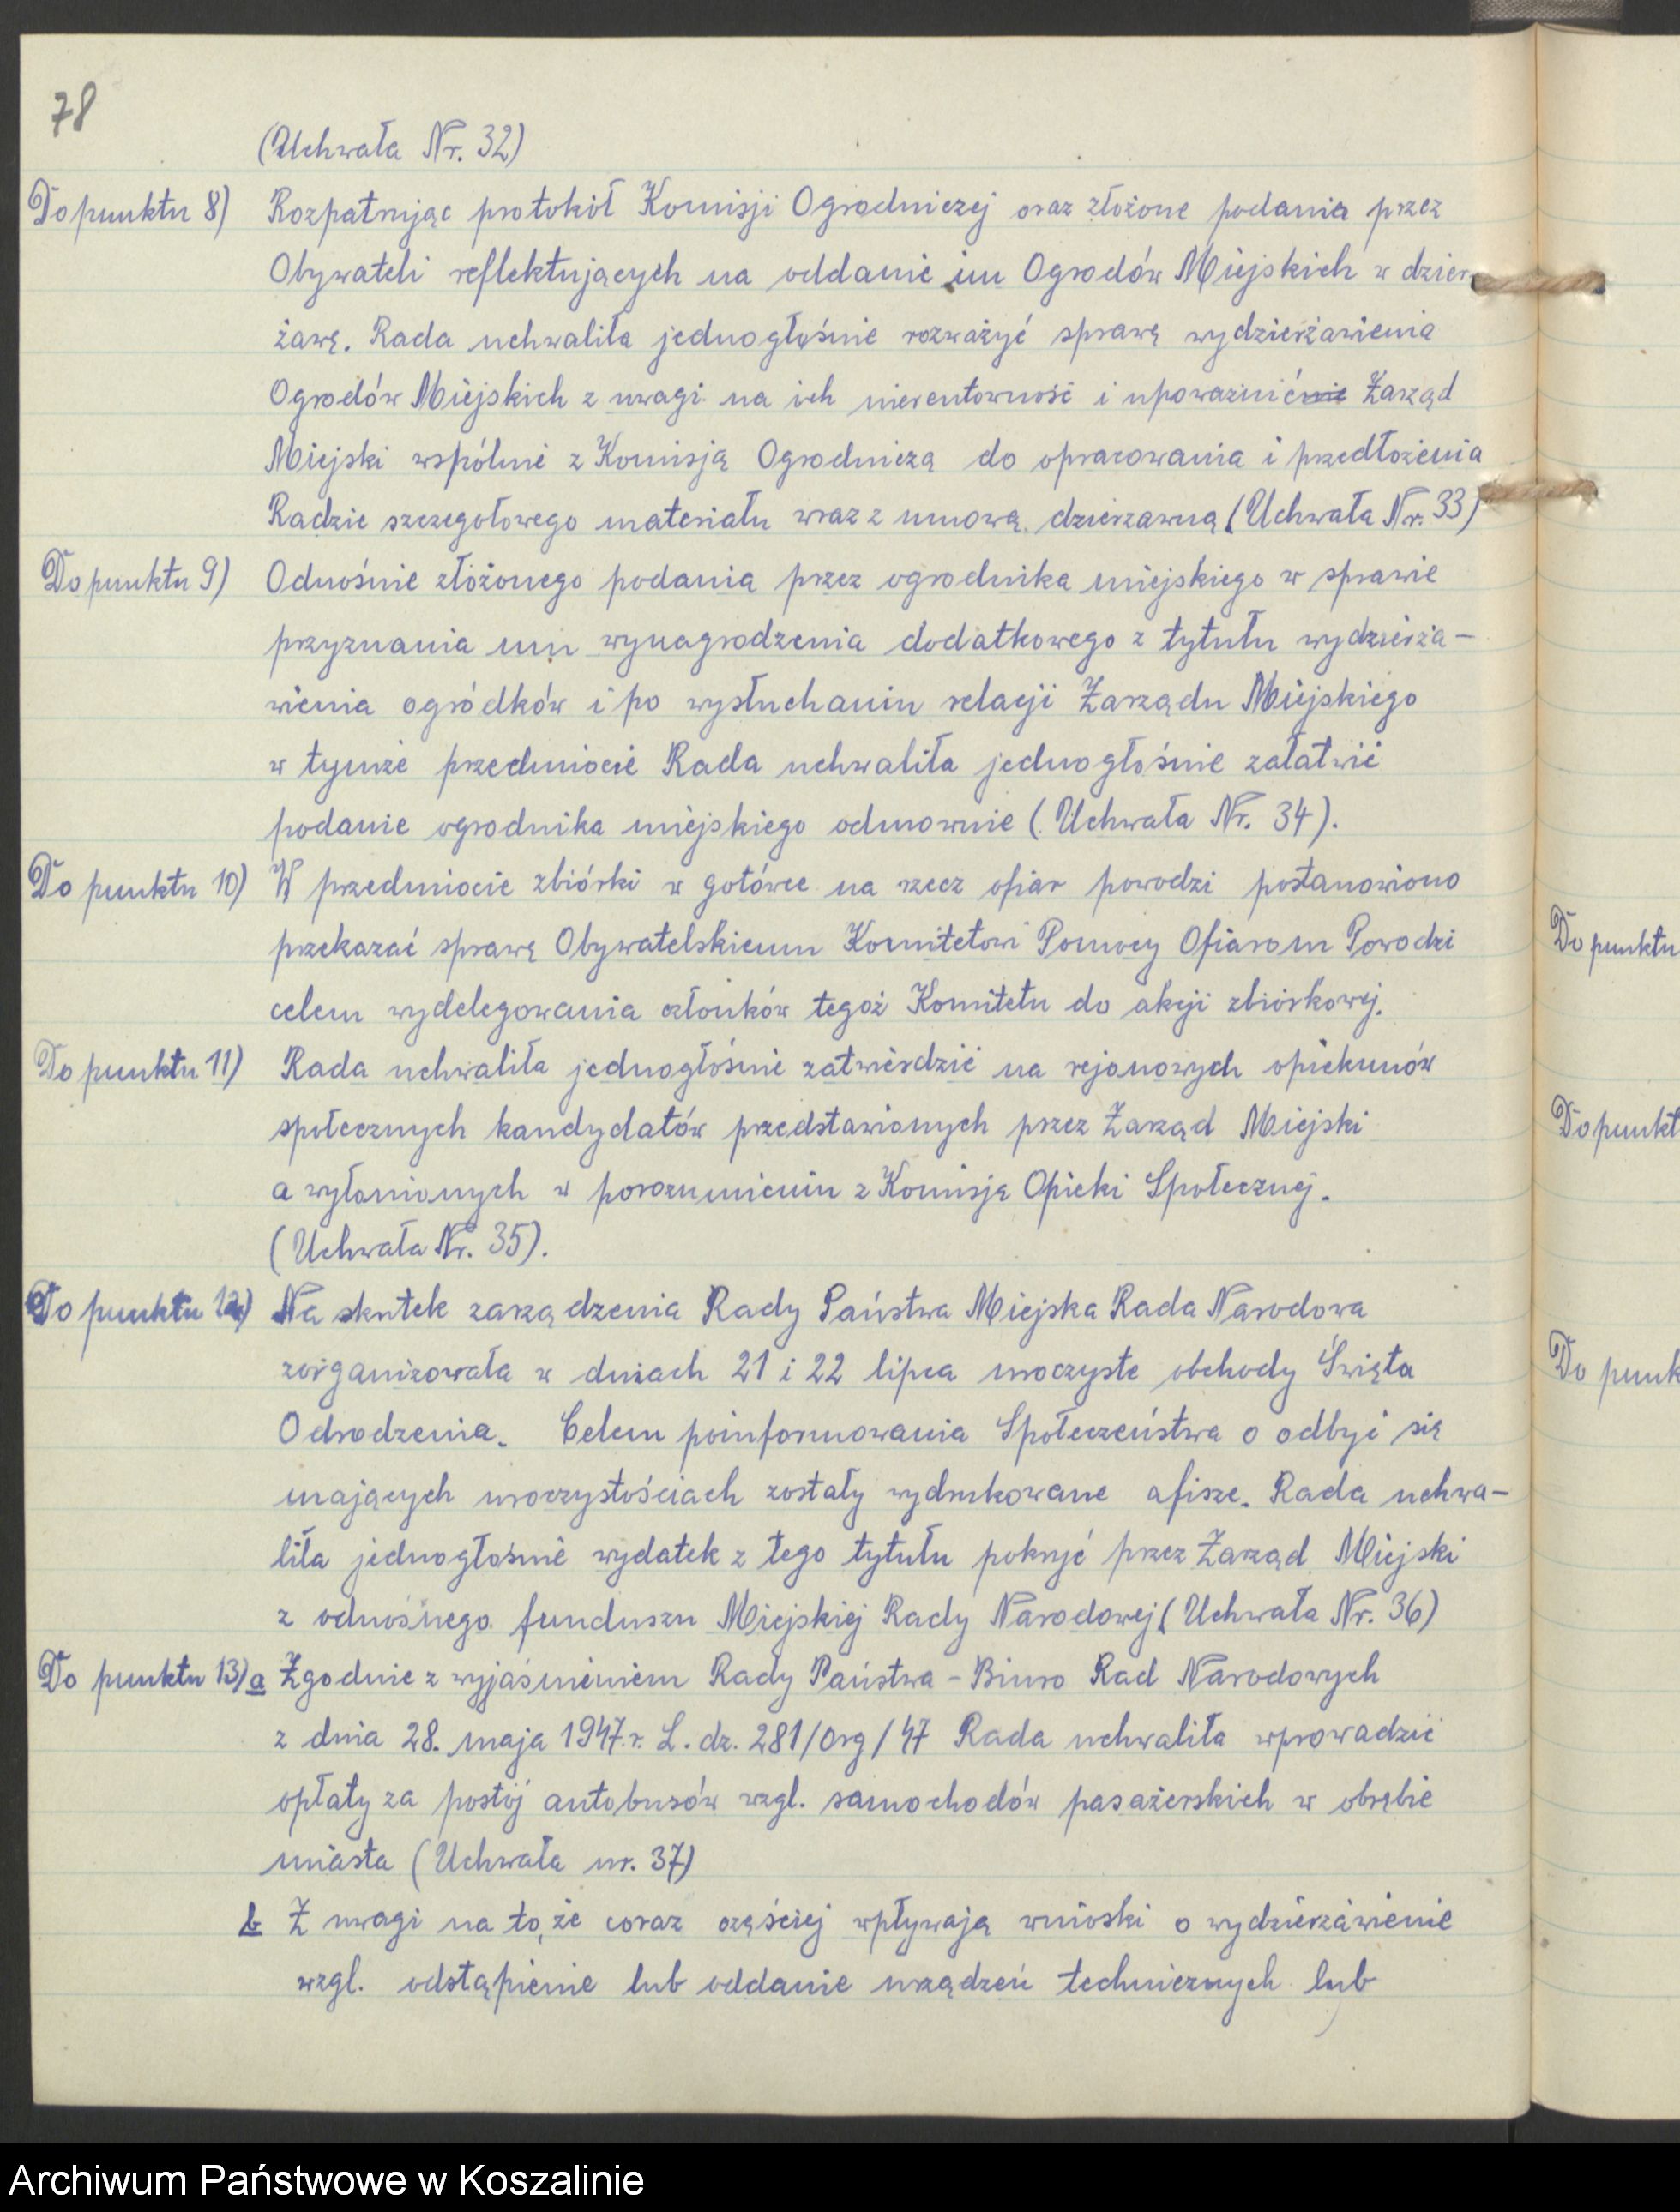 78
(Uchwała Nr. 32)
Do punktu 8) Rozpatrując protokół Komisji Ogrodniczej oraz złożone podania przez
Obywateli reflektujących na oddanie im Ogrodów Miejskich w dzier-
żawę. Rada uchwaliła jednogłośnie rozważyć sprawę wydzierżawienia
Ogrodów Miejskich z uwagi na ich nierentowność i upoważnić Zarząd
Miejski wspólnie z Komisją Ogrodniczą do opracowania i przedłożenia
Radzie szczegołowego materiału wraz z umową dzierzawną (Uchwała Nr. 33)
Do punktu 9) Odnośnie złożonego podania przez ogrodnika miejskiego w sprawie
przyznania mu wynagrodzenia dodatkowego z tytułu wydzierża-
wienia ogródków i po wysłuchaniu relacji Zarządu Miejskiego
w tymże przedmiocie Rada uchwaliła jednogłośnie załatwić
podanie ogrodnika miejskiego odmownie (Uchwała Nr. 34).
Do punktu 10) W przedmiocie zbiórki w gotówce na rzecz ofiar powodzi postanowiono
przekazać sprawę Obywatelskiemu Komitetowi Pomocy Ofiarom Powodzi
celem wydelegowania członków tegoż Komitetu do akcji zbiórkowej.
Do punktu 11) Rada uchwaliła jednogłośnie zatwierdzić na rejonowych opiekunów
społecznych kandydatów przedstawionych przez Zarząd Miejski
a wyłonionych w porozumieniu z Komisją Opieki Społecznej.
(Uchwała Nr. 35).
Do punktu 12) Na skutek zarządzenia Rady Państwa Miejska Rada Narodowa
zorganizowała w dniach 21 i 22 lipca uroczyste obchody Święta
Odrodzenia. Celem poinformowania Społeczeństwa o odbyć się
mających uroczystościach zostały wydrukowane afisze. Rada uchwa-
liła jednogłośnie wydatek z tego tytułu pokryć przez Zarząd Miejski
z odnośnego funduszu Miejskiej Rady Narodowej (Uchwała Nr. 36)
Do punktu 13) a Zgodnie z wyjaśnieniem Rady Państwa - Biuro Rad Narodowych
z dnia 28. maja 1947.r. L. dz. 281/Org/47 Rada uchwaliła wprowadzić
opłaty za postój autobusów wzgl. samochodów pasażerskich w obrębie
miasta (Uchwała nr. 37)
b Z uwagi na to, że coraz częściej wpływają wnioski o wydzierżawienie
wzgl. odstąpienie lub oddanie urządzeń technicznych lub
Do punktu
Do punkt
Do punk
Archiwum Państwowe w Koszalinie